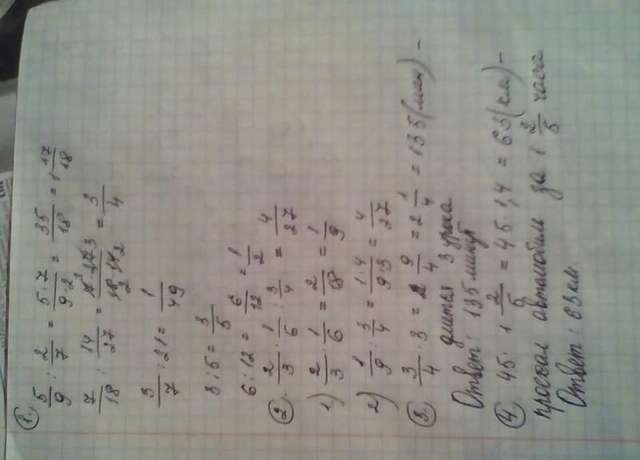 1. 5/9 : 2/7 = 5·7/9·2 = 35/18 = 1 17/18
7/18 : 14/27 = 3/4
3/7 : 21 = 1/49
3 : 5 = 3/5
6 : 12 = 6/12 = 1/2
2. 2/3 · 1/6 : 3/4 = 4/27
1) 2/3 · 1/6 = 2/18 = 1/9
2) 1/9 : 3/4 = 1·4/9·3 = 4/27
3. 3/4 · 3 = 9/4 = 2 1/4 = 135 (мин) -
длится 3 урока
Ответ: 135 минут
4. 45 · 1 2/5 = 45 · 1,4 = 63 (км) -
проехал автомобиль за 1 2/5 часа
Ответ: 63 км.